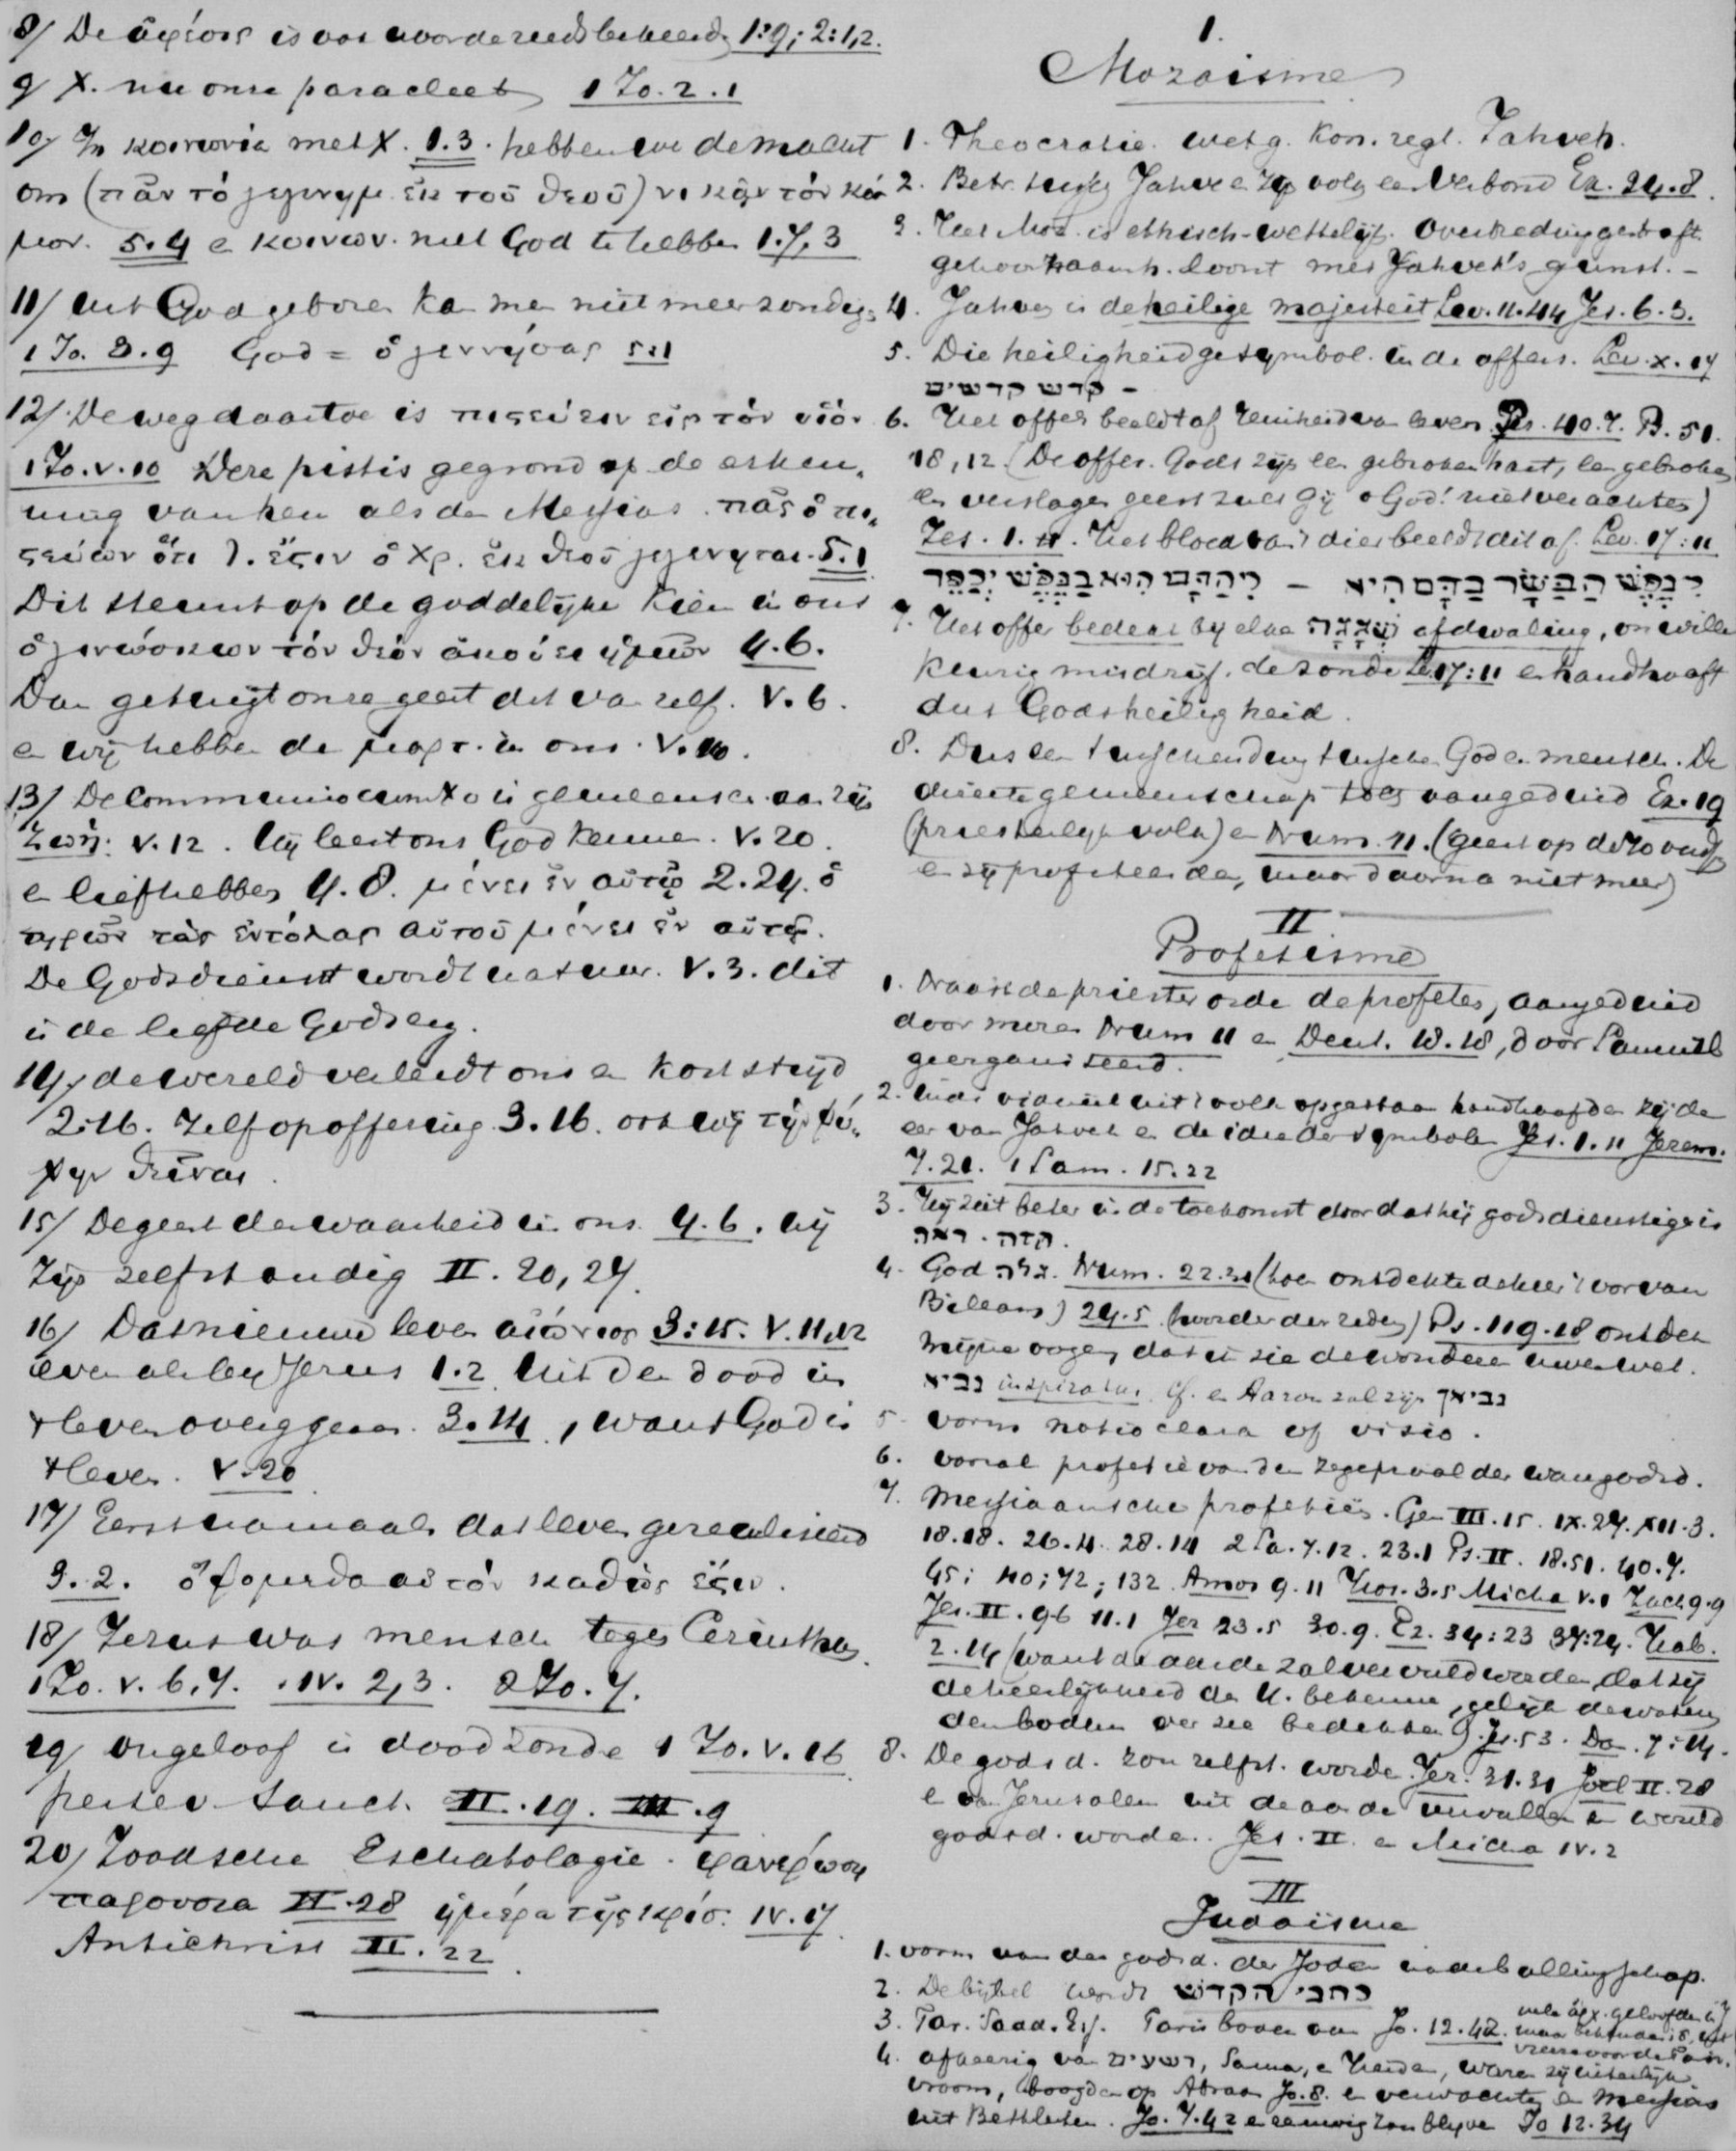 8/ De ἄφέσις is voorwaardereeds bekeerd 1:9; 2:1,2.
9/ X. nu onze paracleet 1 Jo. 2.1
10/ In κοινωνία met X. 1.3. hebben we de macht
om (πᾶν τό γεγεννημ. ἐκ τοῦ θεοῦ) νικᾷν τόν κόσ
μον. 5.4 e κοινων. met God te hebben 1.7,3
11/ uit God geboren kan men niet meer zondig.
1 Jo. 3.9 God = ὁ γεννήσας 5:1
12/ De weg daartoe is πιστεύειν εἰς τόν υἱόν
1 Jo. V. 10 Deze pistis gegrond op de erken,
ning van hem als den Messias. πᾶς ὁ πι,
στεύων ὅτι Ἰ. ἔστιν ὁ Χρ. ἐκ θεοῦ γεγεννηται. 5.1
Dit steunt op de goddelijke kiem in ons
ὁ γινώσκων τόν θεόν ἀκούει ἡμῶν 4.6.
Dan getuigt onze geest dit van zelf. V. 6.
en wij hebben de μαρτ. in ons. V. 10.
13/ De communio cum Xo is gemeensch. aan zijn
ζωή: V. 12. Hij leert ons God kennen. V. 20.
en liefhebben 4.8. μένει ἐν αὐτῷ 2.24. ὁ
τηρῶν τάς ἐντόλας αὐτοῦ μένει ἐν αὐτῷ.
De Godsdienst wordt natuur. V. 3. dit
is de liefde Gods enz.
14/ de wereld verleidt ons en kost strijd
2:16. Zelfopoffering 3.16. ook wij τήν ψυ,
χην θεῖναι.
15/ De geest der waarheid in ons. 4.6. wij
zijn zelfstandig II. 20, 27.
16/ Dat nieuwe leven αἰώνιος 3:15. V. 11,12
even als bij Jezus 1.2 uit den dood in
't leven overgegaan. 3.14, want God is
't leven. V. 20
17/ Eerst namaals dat leven gerealiseerd
3.2. ὀψομεθα αὐτόν καθὼς ἔστιν.
18/ Jezus was mensch tegen Cerinthus.
1 Jo. V. 6,7. IV. 2,3. 2 Jo. 7.
19/ ongeloof is doodzonde 1 Jo. V. 16
persev. sanct. II. 19. III. 9
20/ Joodsche Eschatologie. φανέρωσις
παρουσια II. 28 ἡμέρα τῆς κρίσ. IV. 17
Antichrist II. 22
I.
Mozaisme
1. Theocratie. wetg. kon. regt. Jahveh.
2. Betr. tusschen Jahve en zijn volg een Verbond Ex. 24.8.
3. Het Moz. is ethisch-wettelijk. Overtreding gestraft.
gehoorzaamh. loont met Jahveh's gunst. –
4. Jahveh is de heilige majesteit Lev. 11.44 Jes. 6.3.
5. Die heiligheid gesymbol. in de offers. Lev. X. 17
קדש קדשים –
6. Het offer beeldt af reinheid van leven. Ps. 40.7. Ps. 51.
18,12. (De offer. Gods zijn een gebroken hart, een gebroken
en verslagen geest zult Gij o God! niet verachten)
Jes. 1. 11. Het bloed van 't dier beeldt dit af. Lev. 17:11
כִּי נֶפֶשׁ הַבָּשָׂר בַּדָּם הִיא – כִּי הַדָּם הוּא בַּנֶּפֶשׁ יְכַפֵּר
7. Het offer bedekt bij elke שְׁגָגָה afdwaling, onwille
keurig misdrijf. de zonde Le. 17:11 en handhaaft
dus Gods heiligheid.
8. Dus een tusschending tusschen God en mensch. De
directe gemeenschap toch aangeduid Ex. 19
(priesterlijk volk) en Num. 11. (geest op de 70 oudsten
en zij profeteerden, maar daarna niet meer)
II
Profetisme
1. Naast de priesterorde de profeten, aangeduid
door mozes Num 11 en Deut. 18.18, door Samuel
georganiseerd.
2. individueel uit 't volk opgestaan handhaafden zij de
eer van Jahveh en de idee der symbolen Jes. 1.11 Jerem.
7.21. 1 Sam. 15.22
3. Hij ziet beter in de toekomst doordat hij godsdienstiger is
חזה. ראה.
4. God גלה. Num. 22.31 (toen ontdekte de heer 't oor van
Bileam) 24.5 (hoorder der reden) Ps. 119.18 ontdek
mijne oogen, dat ik zie de wonderen uwer wet.
נביא inspiratus. cf. en Aaron zal zijn נביאך
5. vorm notio clara of visio.
6. vooral profetie van den zegepraal der waren godsd.
7. Messiaansche profetiën. Gen III. 15. IX. 27. XII. 3.
18.18. 26.4. 28.14 2 Sa. 7.12. 23.1 Ps. II. 18.51. 40.7.
45; 110; 72; 132. Amos 9.11 Hos. 3.5 Micha V.1 Zach 9.9
Jes. II. 96 11.1 Jer 23.5 30.9. Ez. 34:23 37:24. Hab.
2.14 (want de aarde zal vervuld worden, dat zij
de heerlijkheid des H. bekenne, gelijk de wateren
den bodem der zee bedekken) Jes. 53. Da. 7:14.
8. De godsd. zou zelfst. worden. Jer. 31.31 Joel II. 28
en van Jerusalem uit de aarde vervullen en wereld
godsd. worden. Jes. II. en Micha IV. 2
III
Judaïsme
1. vorm van den godsd. der Joden na de ballingschap.
2. De bijbel wordt כתבי הקדוש
3. Far. Sadd. Ess. Faris boven aan Jo. 12.42.
4. afkeerig van רשעים, Sama, en Heiden, waren zij uiterlijk
vroom, boogden op Abram Jo. 8. en verwachtten den Messias
uit Bethlehem. Jo. 7.42 en eeuwig zou blijven Jo 12.34